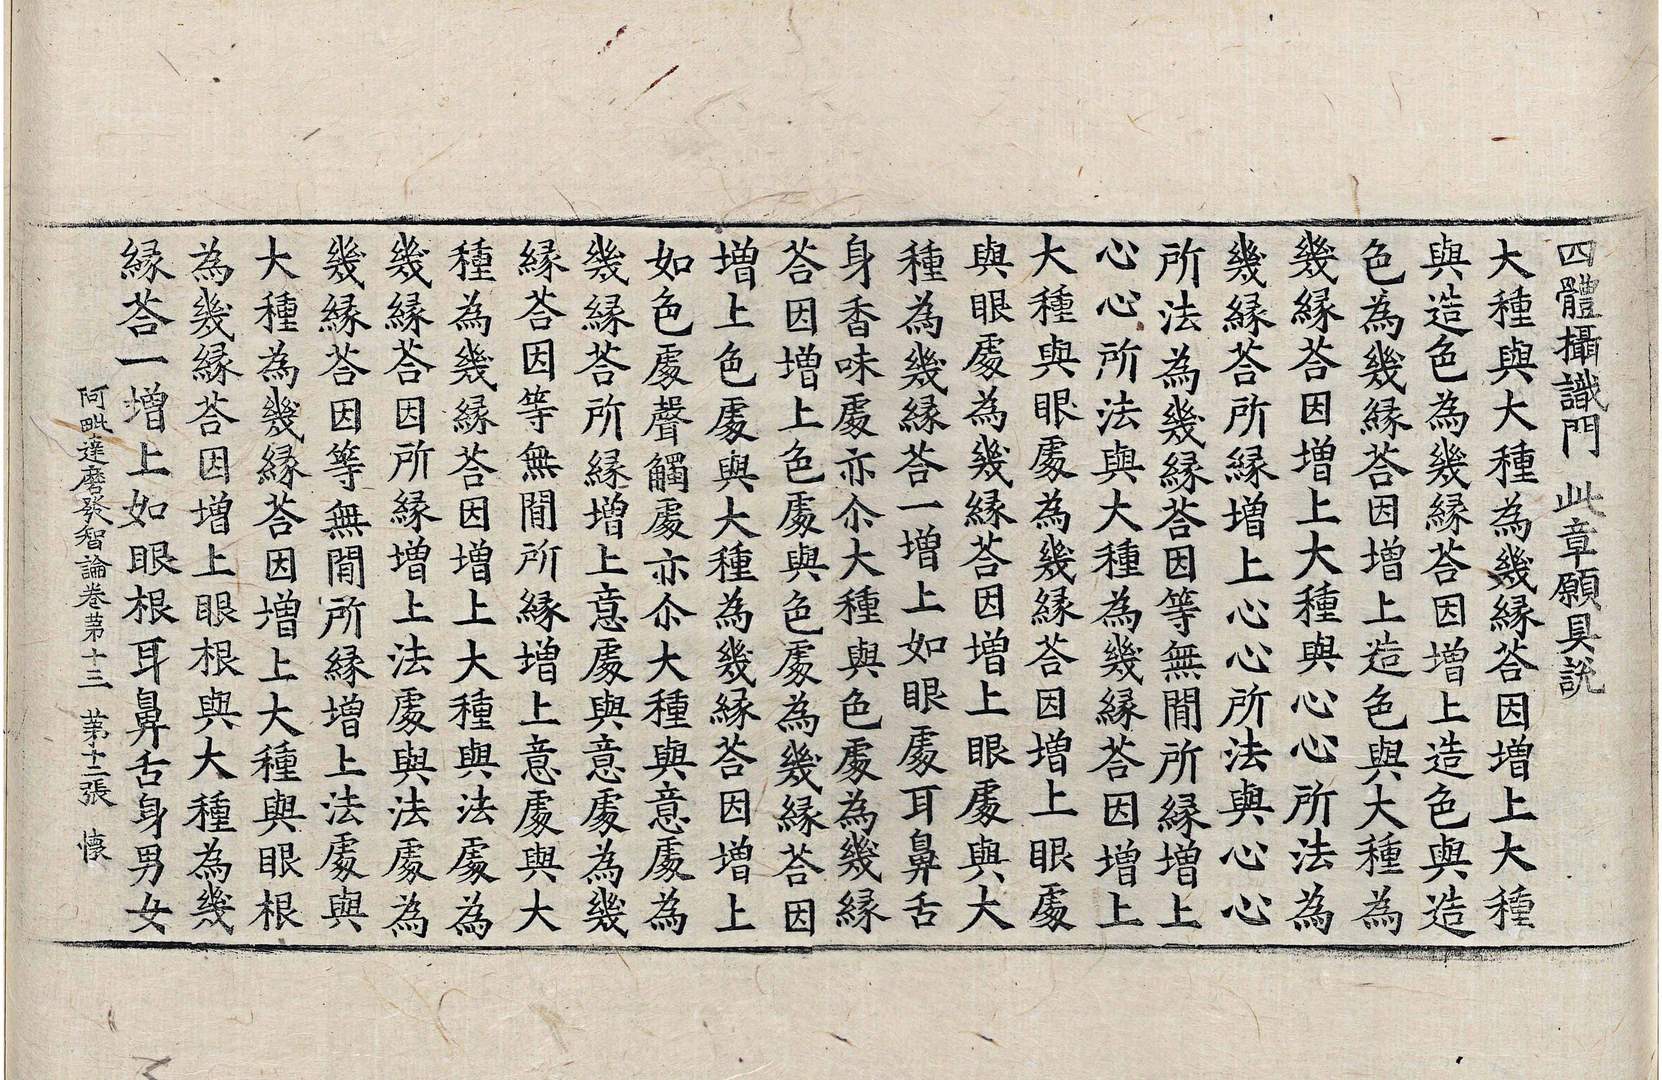 四體攝識門 此章願具說
大種與大種為幾縁荅因增上大種
與造色為幾縁荅因增上造色與造
色為幾縁荅因增上造色與大種為
幾縁荅因增上大種與心心所法為
幾縁荅所縁增上心心所法與心心
所法為幾縁荅因等無間所縁增上
心心所法與大種為幾縁荅因增上
大種與眼處為幾縁荅因增上眼處
與眼處為幾縁荅因增上眼處與大
種為幾縁荅一增上如眼處耳鼻舌
身香味處亦尒大種與色處為幾縁
荅因增上色處與色處為幾縁荅因
增上色處與大種為幾縁荅因增上
如色處聲觸處亦尒大種與意處為
幾縁荅所縁增上意處與意處為幾
縁荅因等無間所縁增上意處與大
種為幾縁荅因增上大種與法處為
幾縁荅因所縁增上法處與法處為
幾縁荅因等無間所縁增上法處與
大種為幾縁荅因增上大種與眼根
為幾縁荅因增上眼根與大種為幾
縁荅一增上如眼根耳鼻舌身男女
阿毗達磨發智論卷苐十三 苐十二張 懷